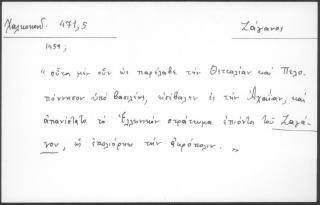 Χαλκοκονδ. 471,5 Ζάγανος
1459;
" οὗτος μὲν οὖν ὡς παρέλαβε τὴν Θετταλίαν καὶ Πελο-
πόννησον ὑπὸ βασιλέως, εἰσέβαλεν ἐς τὴν Ἀχαΐαν, καὶ
ἀπανίσταται τὸ Ἑλληνικὸν στράτευμα ἐπιόντος τοῦ Ζαγά-
νου, ὡς ἐπολιόρκει τὴν ἀκρόπολιν. "